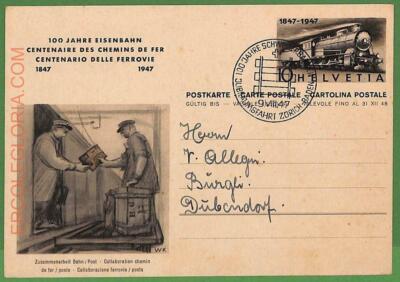 100 JAHRE EISENBAHN
CENTENAIRE DES CHEMINS DE FER
CENTENARIO DELLE FERROVIE
1847 1947
1847-1947
10 HELVETIA
POSTKARTE - CARTE POSTALE - CARTOLINA POSTALE
GÜLTIG BIS - VALEVOLE FINO AL 31 XII 48
100 JAHRE
JUBILÄUMSFAHRT ZÜRICH-BADEN
9.VIII.47
Herrn
V. Allegri
Bürgli
Dübendorf
WK
Zusammenarbeit Bahn/Post - Collaboration chemin
de fer / poste - Collaborazione ferrovia / posta
ERCOLEGLORIA.COM